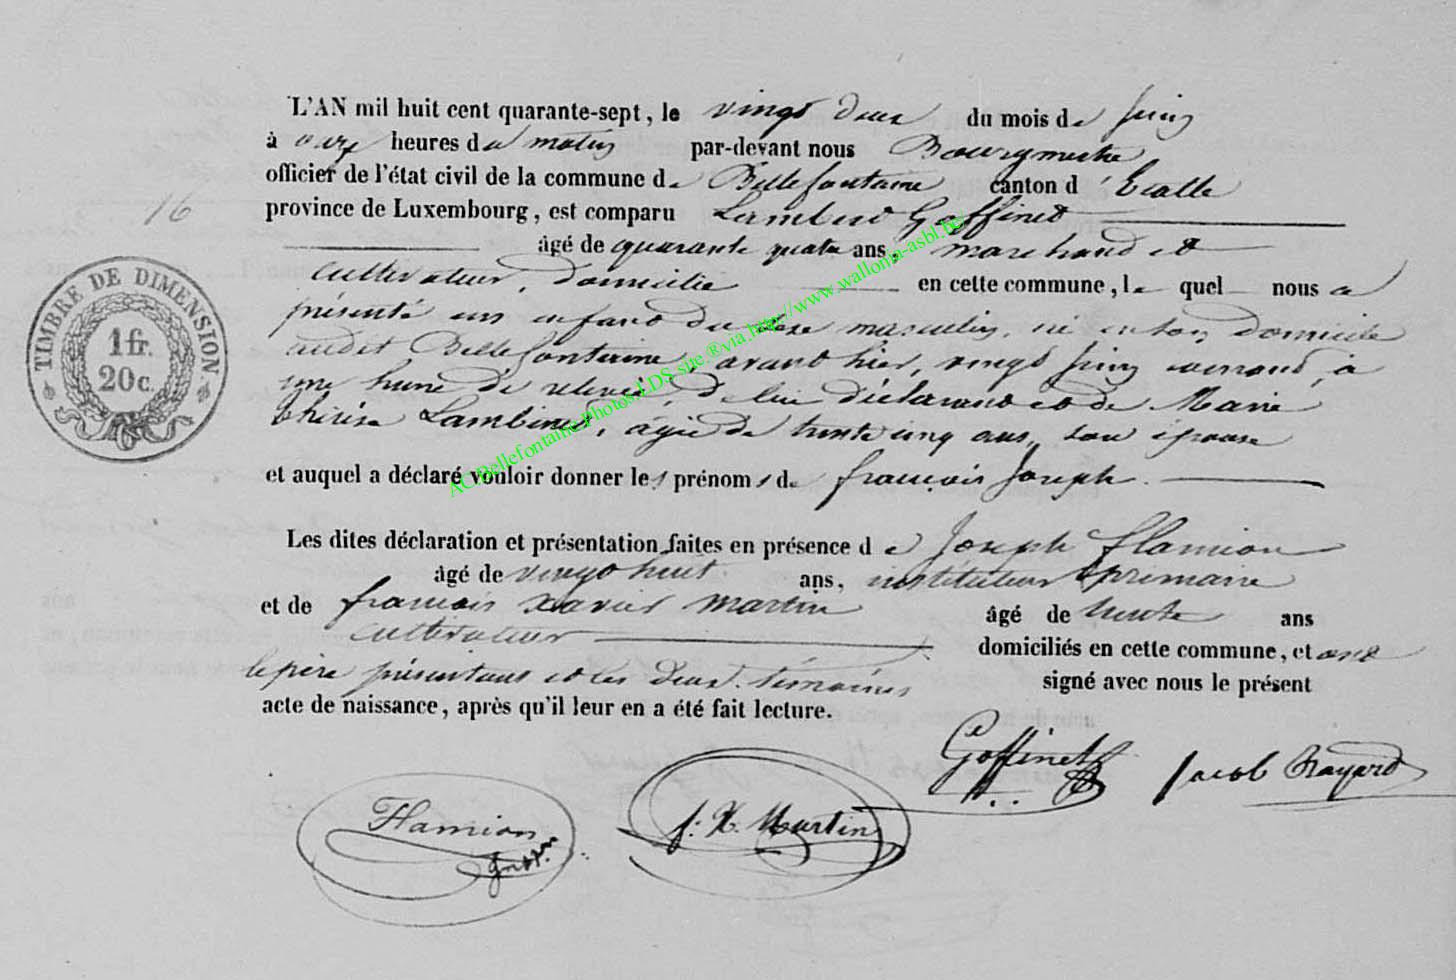 L'AN mil huit cent quarante-sept, le vingt deux du mois de juin
à onze heures du matin par-devant nous Bourgmestre
officier de l'état civil de la commune de Bellefontaine canton d'Etalle
16 province de Luxembourg, est comparu Lambert Goffinet
âgé de quarante quatre ans, marchand et
cultivateur, domicilié en cette commune, le quel nous a
présenté un enfant du sexe masculin, né en son domicile
audit Bellefontaine, avant hier, vingt juin courant, à
une heure de relevée, de lui déclarant et de Marie
thérèse Lambinet, âgée de trente cinq ans, son épouse
et auquel a déclaré vouloir donner les prénoms de françois Joseph.
Les dites déclaration et présentation faites en présence de Joseph flamion
âgé de vingt huit ans, instituteur primaire
et de françois xavier martin âgé de trente ans
cultivateur domiciliés en cette commune, et ont
le père présentant et les deux témoins signé avec nous le présent
acte de naissance, après qu'il leur en a été fait lecture.
Goffinet Jacob
Flamion f. X. Martin
TIMBRE DE DIMENSION
1 fr.
20 c.
AC.Bellefontaine.Photos.LDS.site.®via.http://www.wallonia-asbl.be/